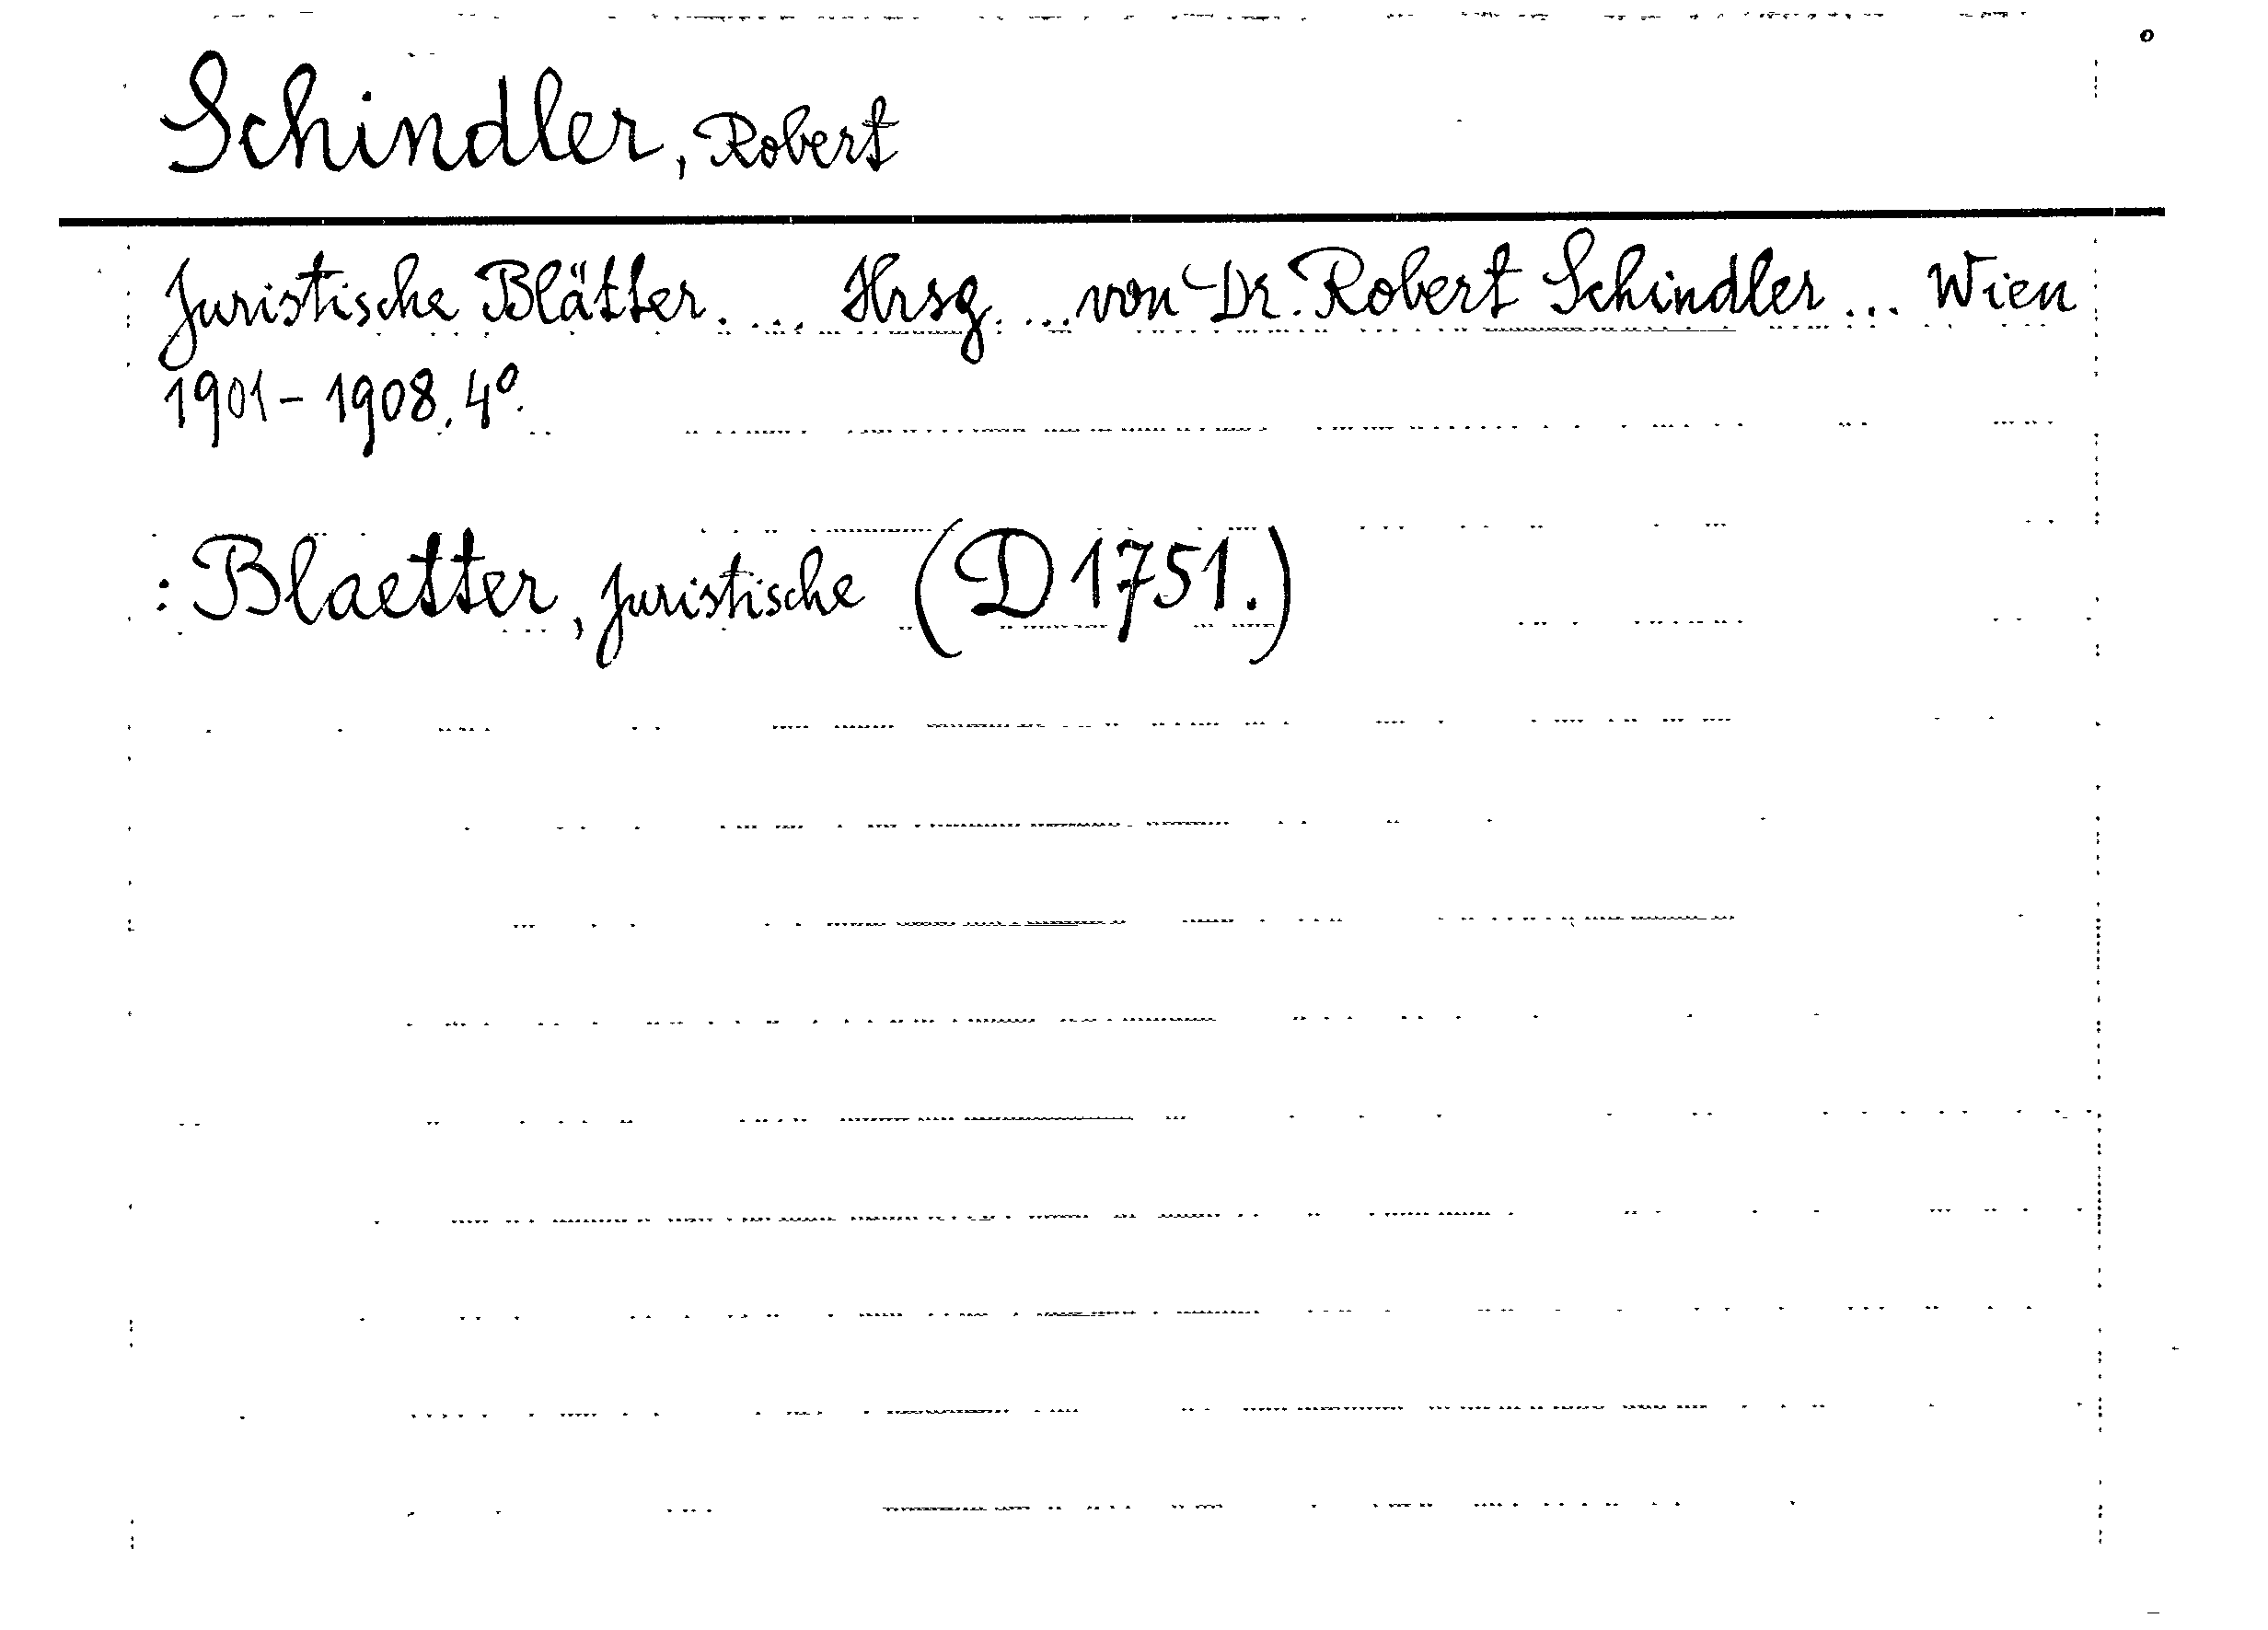 Schindler, Robert
Juristische Blätter. ... Hrsg. ... von Dr. Robert Schindler ... Wien
1901 - 1908. 4º.
: Blaetter, juristische (D 1751.)